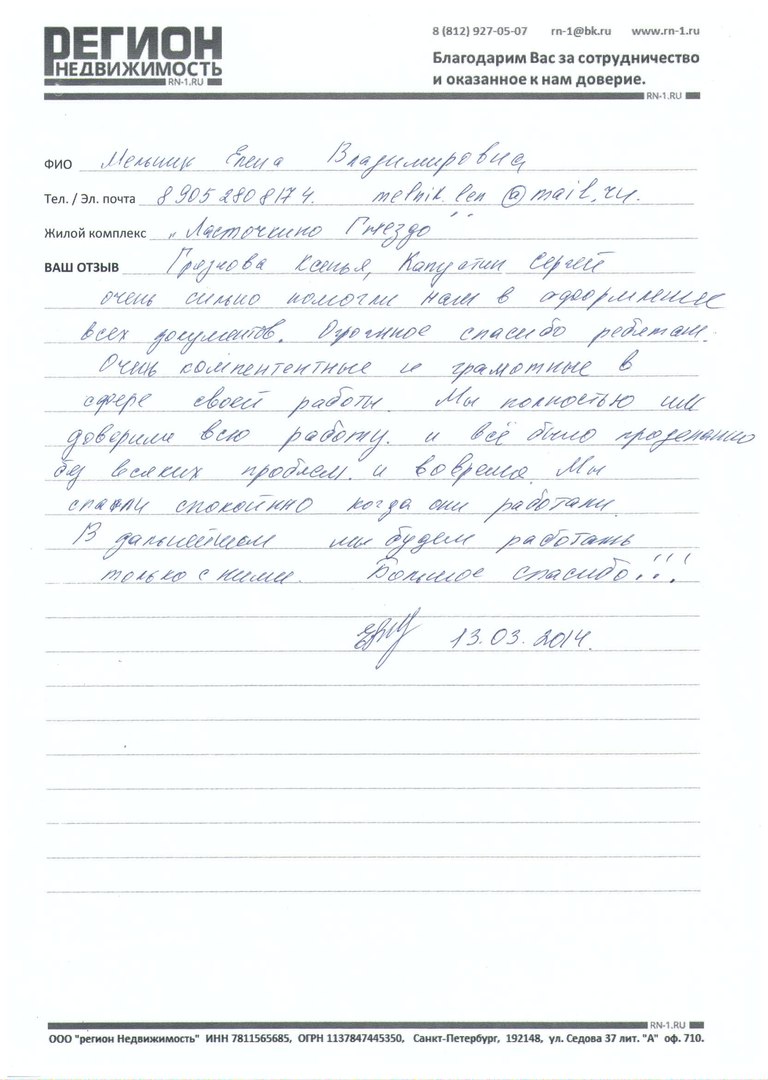 РЕГИОН
НЕДВИЖИМОСТЬ
RN-1.RU
8 (812) 927-05-07 rn-1@bk.ru www.rn-1.ru
Благодарим Вас за сотрудничество
и оказанное к нам доверие.
RN-1.RU
ФИО Мельник Елена Владимировна
Тел. / Эл. почта 8 905 280 8174. melnik.len@mail.ru.
Жилой комплекс "Ласточкино Гнездо"
ВАШ ОТЗЫВ Грязнова Ксенья, Капустин Сергей
очень сильно помогли нам в оформление
всех документов. Огромное спасибо ребятам.
Очень компентентные и грамотные в
сфере своей работы. Мы полностью им
доверили всю работу. и всё было проделанно
без всяких проблем. и вовремя. Мы
спали спокойнно когда они работали.
В дальнейшем мы будем работать
только с ними. Большое спасибо!!!
13.03.2014.
RN-1.RU
ООО "регион Недвижимость" ИНН 7811565685, ОГРН 1137847445350, Санкт-Петербург, 192148, ул. Седова 37 лит. "А" оф. 710.